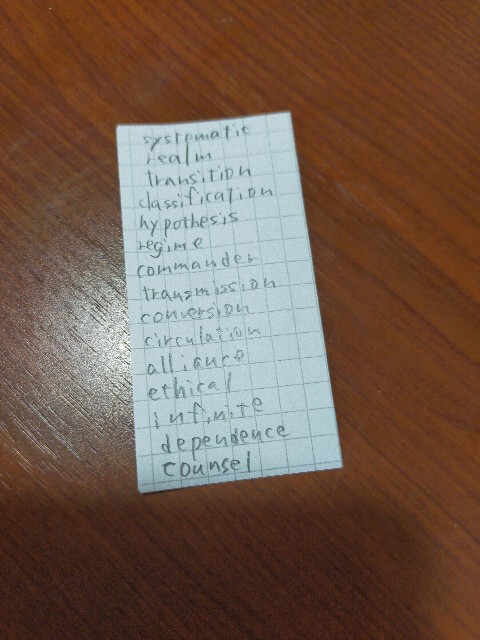 systematic
realm
transition
classification
hypothesis
regime
commander
transmission
conversion
circulation
alliance
ethical
infinite
dependence
counsel